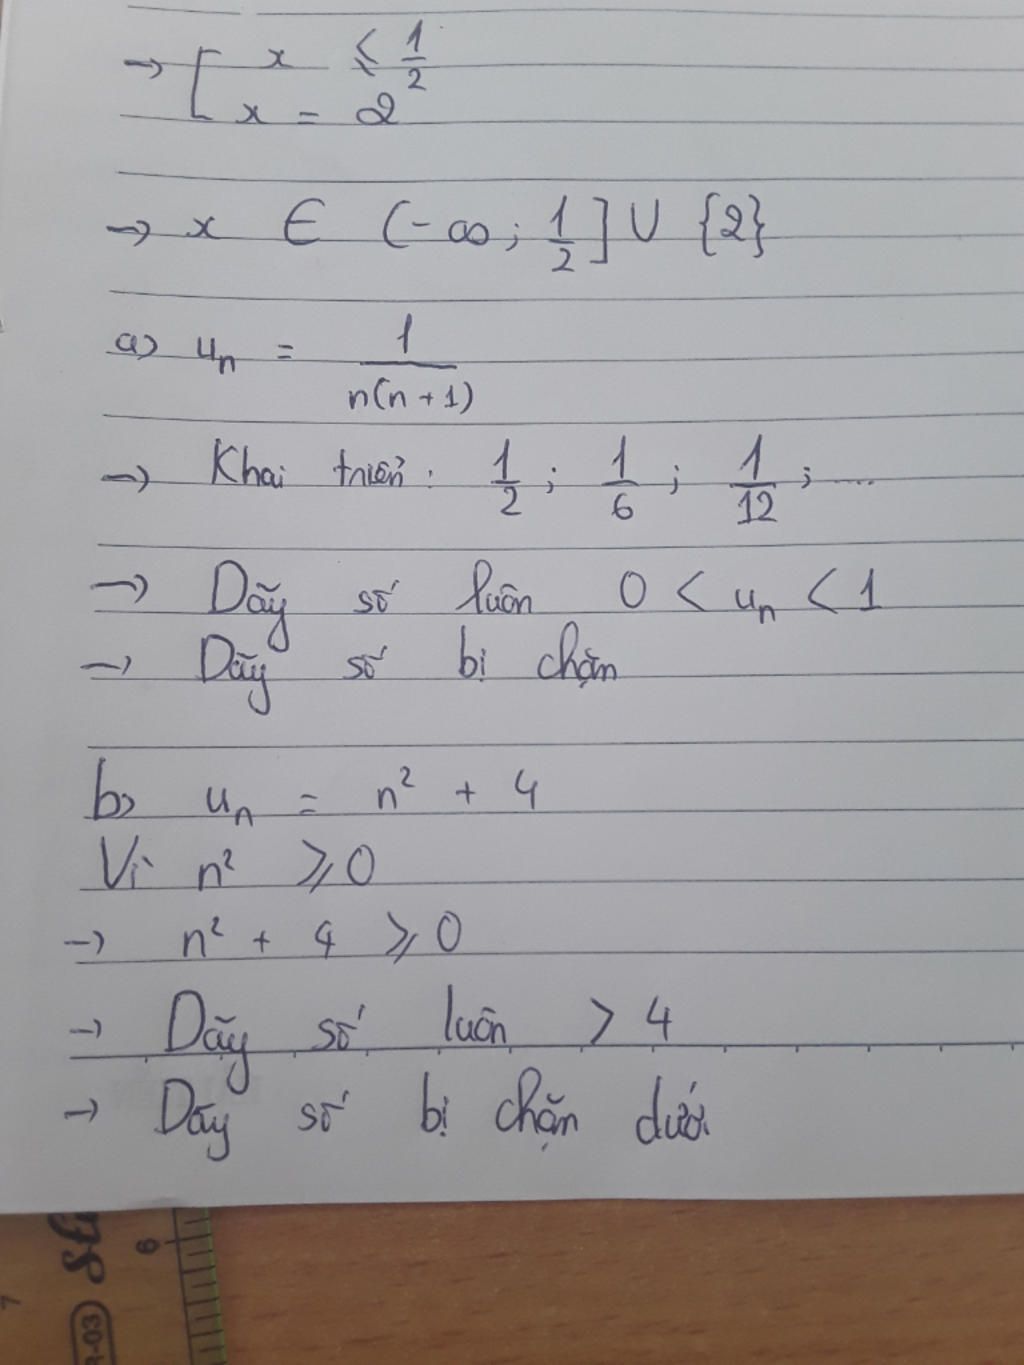 → [ x ≤ 1/2
x = 2
→ x ∈ (-∞; 1/2] ∪ {2}
a) uₙ = 1/n(n+1)
→ Khai triển: 1/2; 1/6; 1/12; ....
→ Dãy số luôn 0 < uₙ < 1
→ Dãy số bị chặn
b) uₙ = n² + 4
Vì n² ≥ 0
→ n² + 4 ≥ 0
→ Dãy số luôn > 4
→ Dãy số bị chặn dưới
6
7
-03